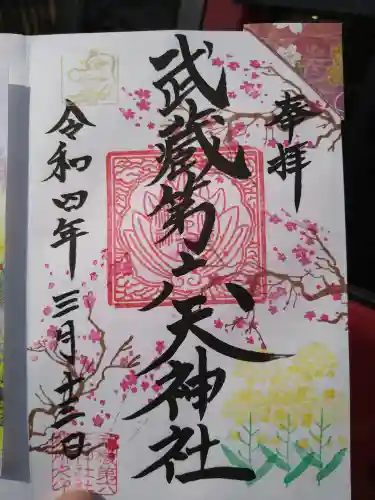 奉拝
武蔵第六天神社
令和四年三月十三日